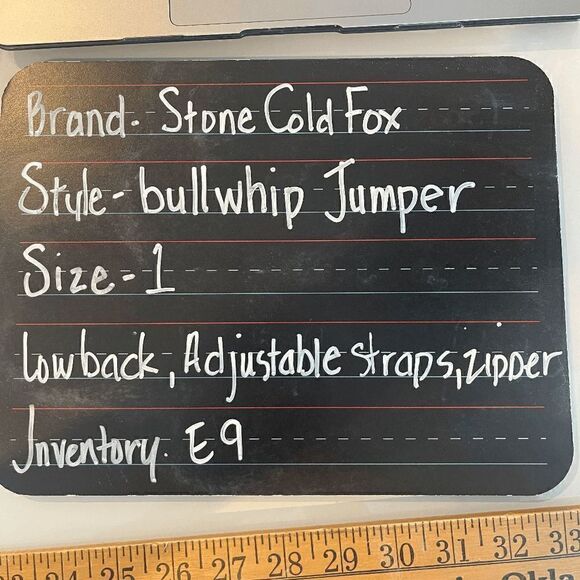 Brand- Stone Cold Fox
Style- bullwhip Jumper
Size-1
Low back, Adjustable straps, zipper
Inventory. E9
23 24 25 26 27 28 29 30 31 32 33